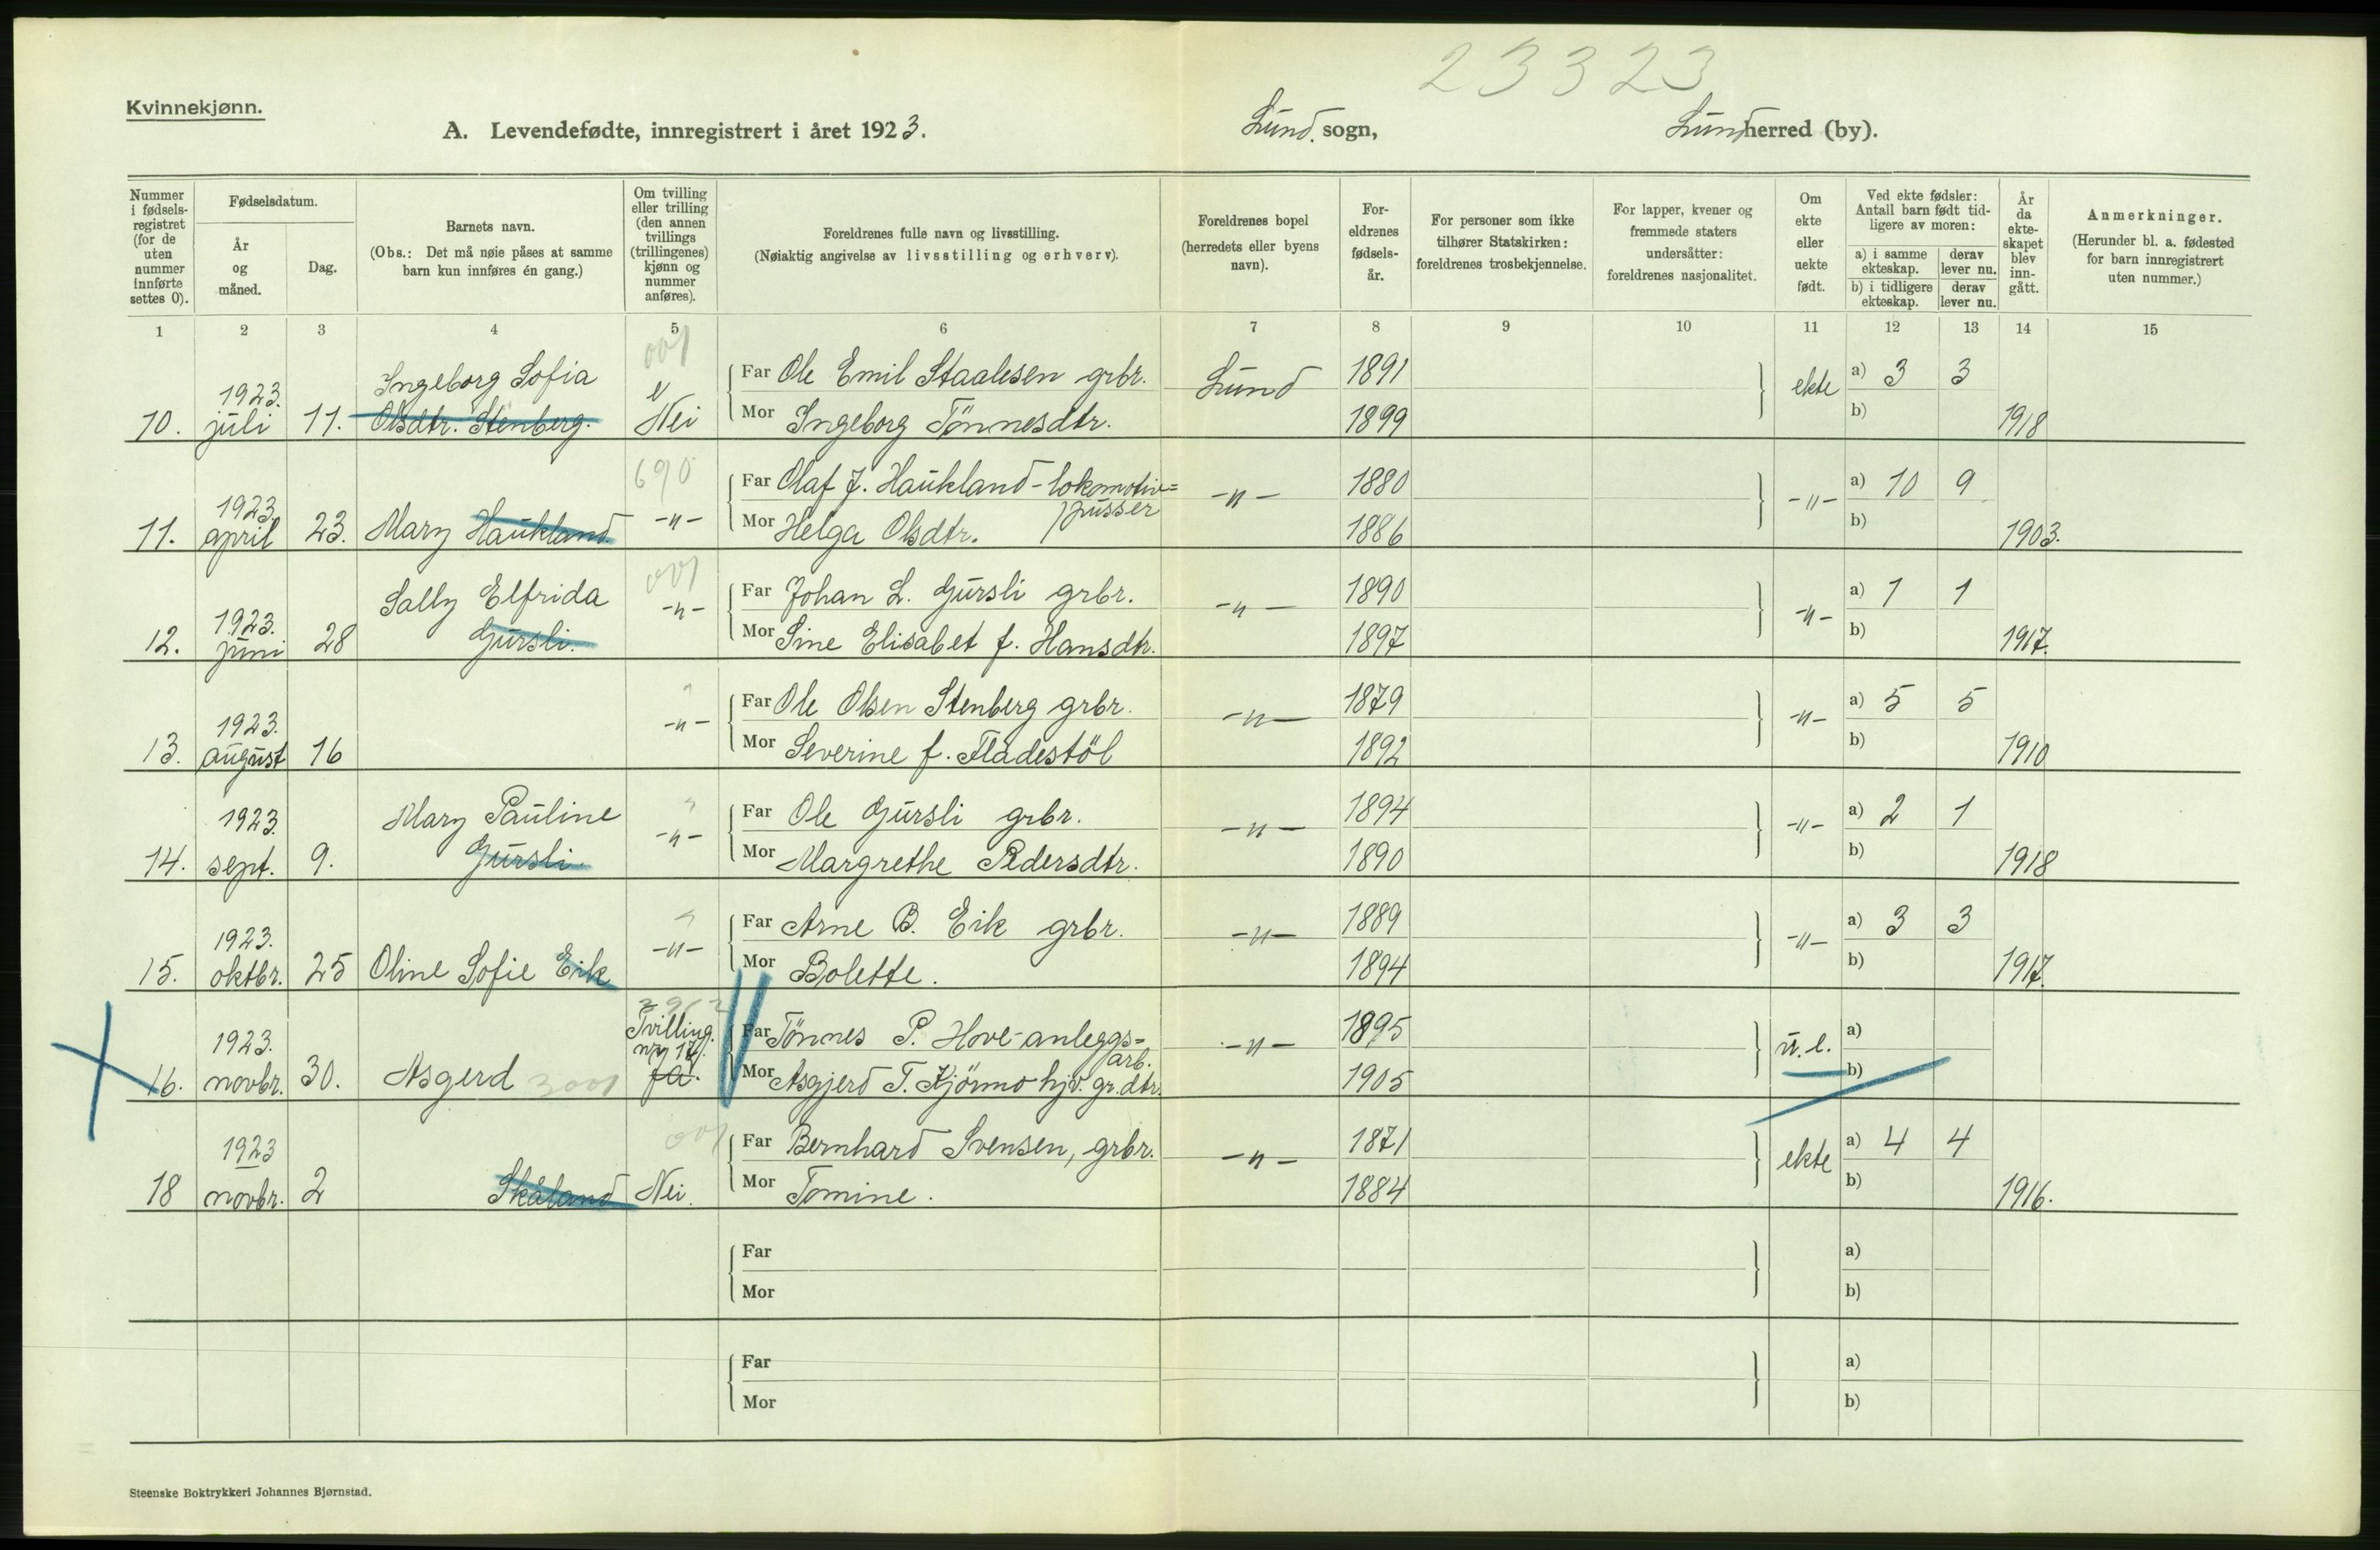 23323
Kvinnekjønn.
A. Levendefødte, innregistrert i året 1923.
Lund sogn,
Lund herred (by).
Nummer i fødsels-registret (for de uten nummer innførte settes 0).
Fødselsdatum.
År og måned.
Dag.
Barnets navn.
(Obs.: Det må nøie påses at samme barn kun innføres én gang.)
Om tvilling eller trilling (den annen tvillings (trillingenes) kjønn og nummer anføres).
Foreldrenes fulle navn og livsstilling.
(Nøiaktig angivelse av livsstilling og erhverv).
Foreldrenes bopel (herredets eller byens navn).
For-eldrenes fødsels-år.
For personer som ikke tilhører Statskirken: foreldrenes trosbekjennelse.
For lapper, kvener og fremmede staters undersåtter: foreldrenes nasjonalitet.
Om ekte eller uekte født.
Ved ekte fødsler: Antall barn født tid-ligere av moren:
a) i samme ekteskap.
derav lever nu.
b) i tidligere ekteskap.
derav lever nu.
År da ekte-skapet blev inn-gått.
Anmerkninger.
(Herunder bl. a. fødested for barn innregistrert uten nummer.)
1 2 3 4 5 6 7 8 9 10 11 12 13 14 15
001
Ingeborg Sofia Far Ole Emil Staalesen grbr. Lund 1891 ekte a) 3 3
10. 1923. juli 11. Olsdtr. Stenberg. Nei Mor Ingeborg Tönnesdtr. 1899 b) 1918
690
Far Olaf J. Haukland - lokomotiv=pusser -"- 1880 -"- a) 10 9
11. 1923. april 23. Mary Haukland -"- Mor Helga Olsdtr. 1886 b) 1903.
001
Sally Elfrida -"- Far Johan L. Gursli grbr. -"- 1890 -"- a) 1 1
12. 1923. juni 28 Gursli. Mor Sine Elisabet f. Hansdtr. 1897 b) 1917.
-"- Far Ole Olsen Stenberg grbr. -"- 1879 -"- a) 5 5
13. 1923. august 16 Mor Severine f. Fladestöl 1892 b) 1910
Mary Pauline -"- Far Ole Gursli grbr. -"- 1894 -"- a) 2 1
14. 1923. sept. 9. Gursli. Mor Margrethe Pedersdtr. 1890 b) 1918
-"- Far Arne B. Eik grbr. -"- 1889 -"- a) 3 3
15. 1923. oktbr. 25 Oline Sofie Eik Mor Bolette. 1894 b) 1917.
Tvilling. nr. 17. Far Tönnes P. Hove - anleggs=arb. -"- 1895 u.e. a)
16. 1923. novbr. 30. Asgerd 3001 ja. Mor Asgjerd T. Kjörmo hjv. gr.dtr. 1905 b)
001
Far Bernhard Svensen, grbr. -"- 1871 ekte a) 4 4
18 1923 novbr. 2 Skåland Nei. Mor Tomine. 1884 b) 1916.
Far a)
Mor b)
Far a)
Mor b)
Steenske Boktrykkeri Johannes Bjørnstad.